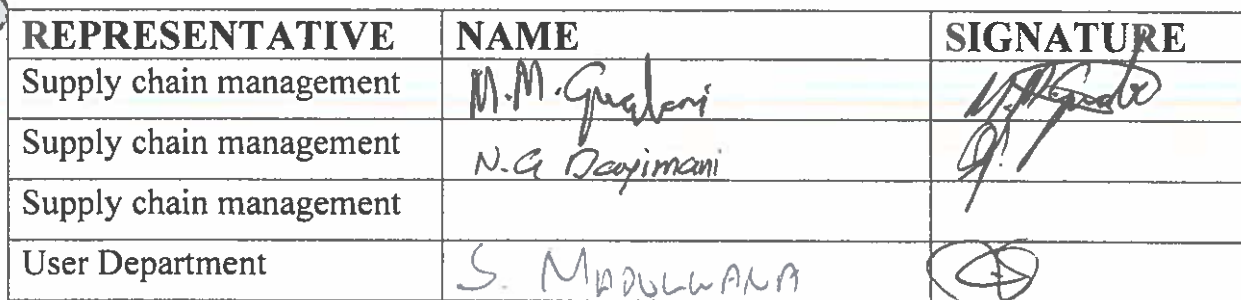 REPRESENTATIVE NAME SIGNATURE
Supply chain management M.M.
Supply chain management N.G Dayimani
Supply chain management
User Department S.